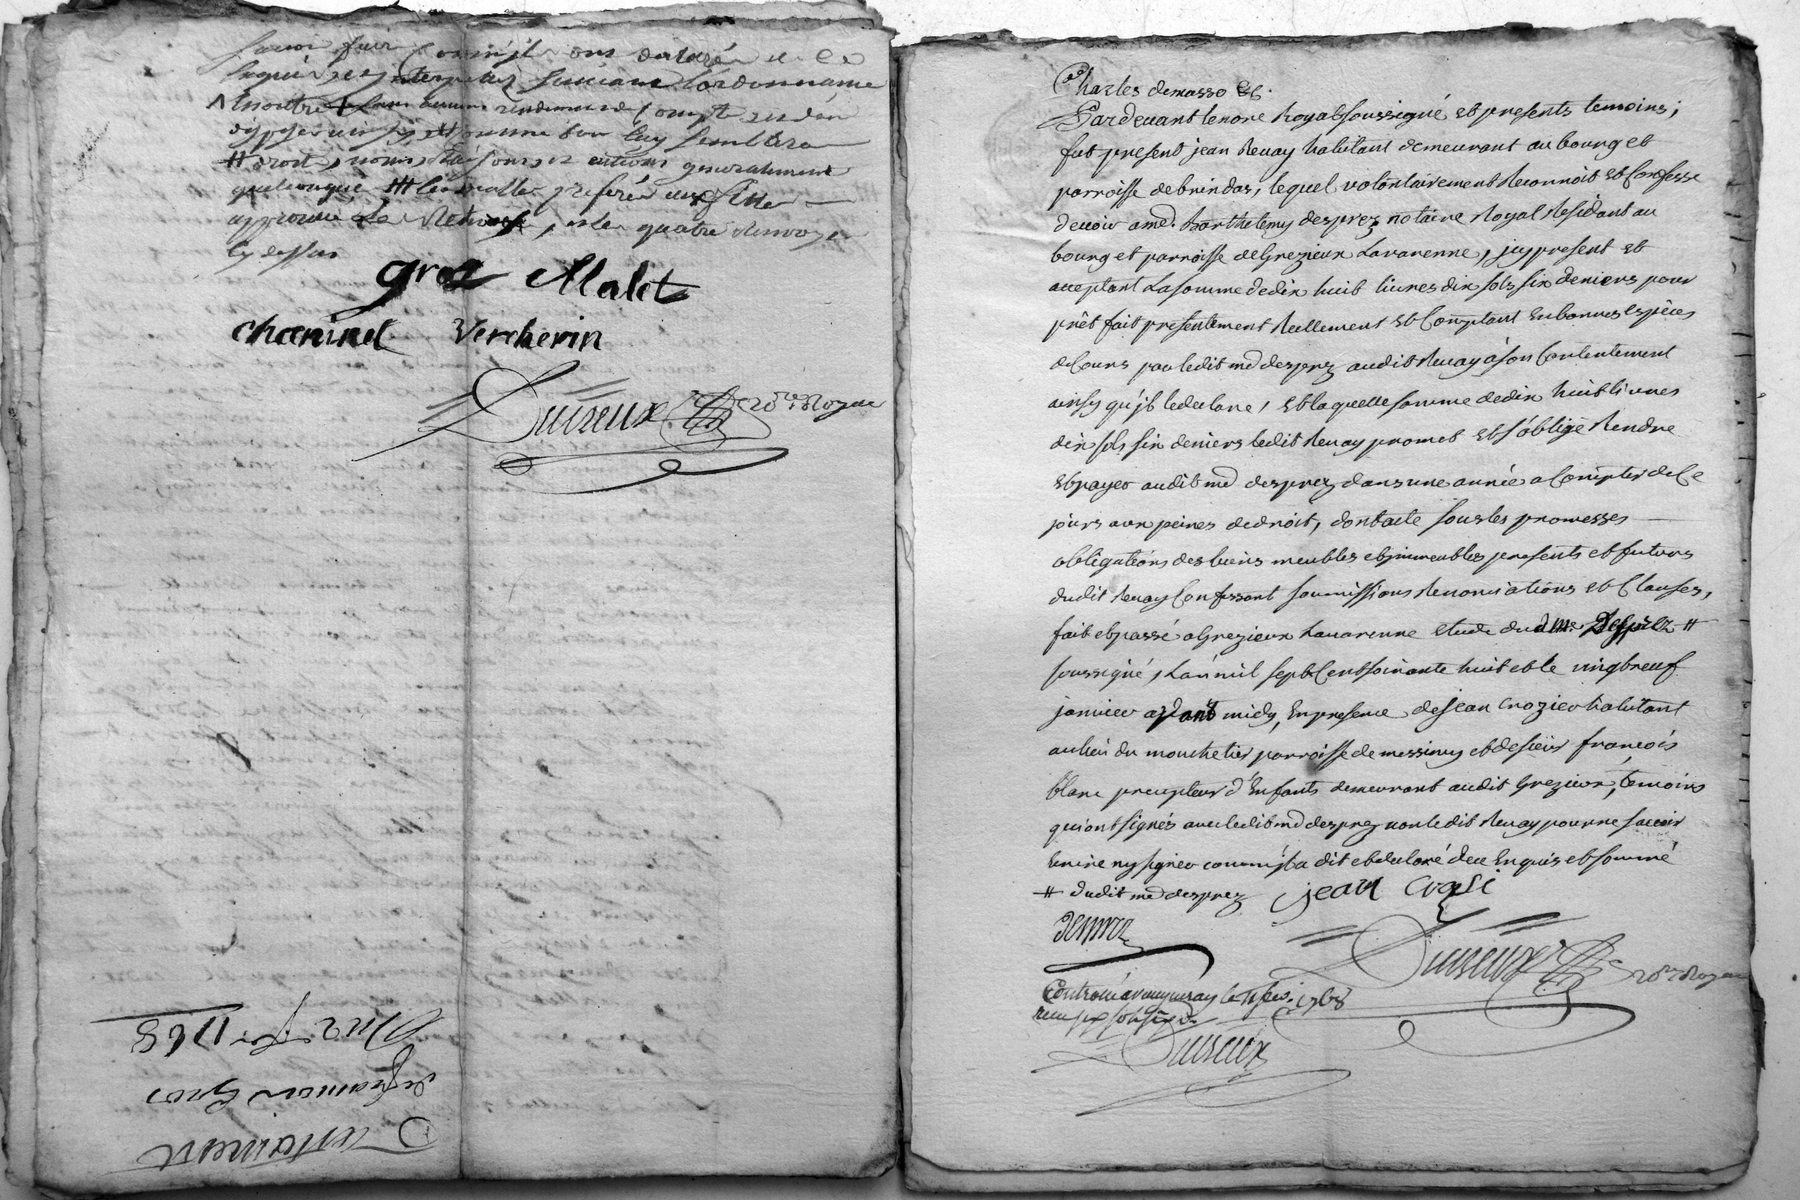 ont declaré de ce
enquis et interpellés suivant l'ordonnance
sans aucune compte
disposer ainsy et comme bon luy semblera
droits, noms, raisons et actions generalement
quelconques
approuvé et les quatre renvoys
cy dessus
gros Malet
chaninel Vercherin
Duvieux no.re Royal
Testament
de francois Gros
Du 2 fev.r 1768
Charles demasso &c.
Pardevant le no.re Royal soussigné et presents temoins;
fut present jean Revay habitant demeurant au bourg et
parroisse de brindas, lequel volontairement Reconnoit et Confesse
devoir a me. Barthelemy desprez notaire Royal Residant au
bourg et parroisse de Grezieux Lavarenne, jcy present et
acceptant La somme de dix huit livres dix sols six deniers pour
prêt fait presentement Reellement et Comptant en bonnes espèces
de Cours par ledit me desprez audit Revay à son Contentement
ainsy qu'jl le declare, et laquelle somme de dix huit livres
dix sols six deniers ledit Revay promet et s'oblige Rendre
et payer audit me desprez dans une année a Compter de Ce
jour aux peines de droit, dont acte sous les promesses
obligations des biens meubles et jmmeubles presents et futurs
dudit Revay Confessant soumissions Renonciations et Clauses,
fait et passé a Grezieux Lavarenne etude du d. me. Desprez #
soussigné, L'an mil sept Cent soixante huit et le vingt neuf
janvier avant midy, En presence de jean Crozier habitant
au lieu du mouchetier parroisse de messimy et de sieur françois
blanc precepteur d'Enfants demeurant audit Grezieux, temoins
qui ont signés avec ledit me desprez non ledit Revay pour ne savoir
Ecrire ny signer comm'jl a dit et declaré de ce Enquis et sommé
# dudit me desprez jean crosi
Desprez
Duvieux no.re Royal
Controllé a vaugneray le 11 fev. 1768
reçu six sols six d.
Duvieux